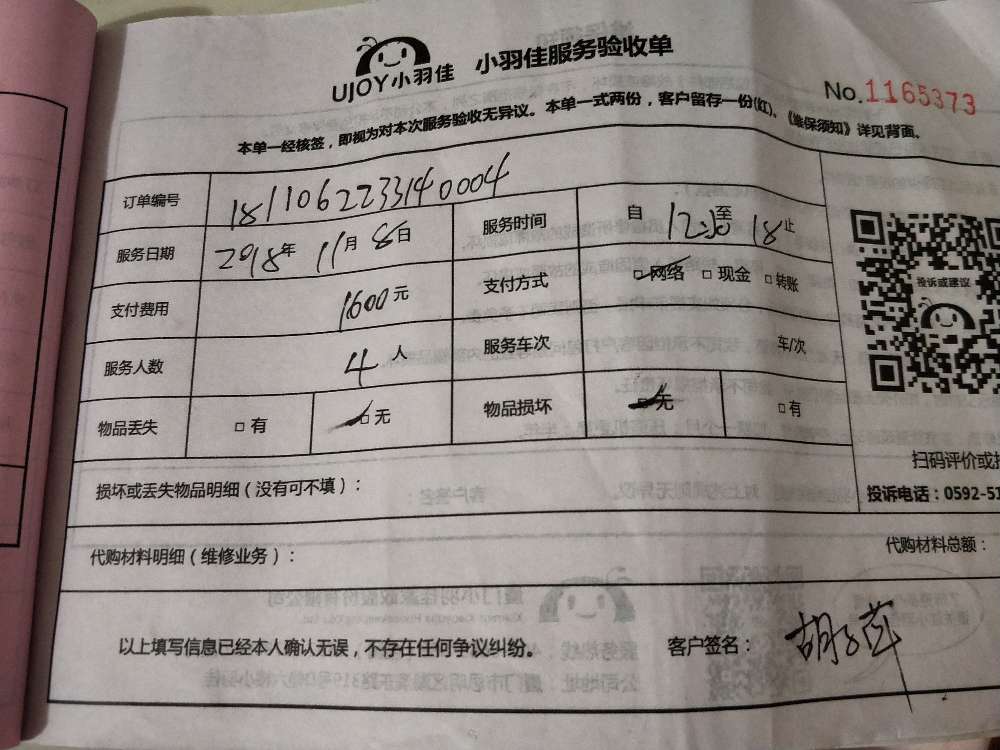 UJOY小羽佳 小羽佳服务验收单
No.1165373
本单一经核签，即视为对本次服务验收无异议。本单一式两份，客户留存一份(红)。《维保须知》详见背面。
订单编号 1811062233140004
服务日期 2018年11月8日 服务时间 自12:30至18止
支付费用 1600元 支付方式 □网络 □现金 □转账
服务人数 4人 服务车次 车/次
物品丢失 □有 □无 物品损坏 □无 □有
投诉或建议
扫码评价或
损坏或丢失物品明细（没有可不填）：
投诉电话：0592-51
代购材料明细（维修业务）： 代购材料总额：
以上填写信息已经本人确认无误，不存在任何争议纠纷。 客户签名：